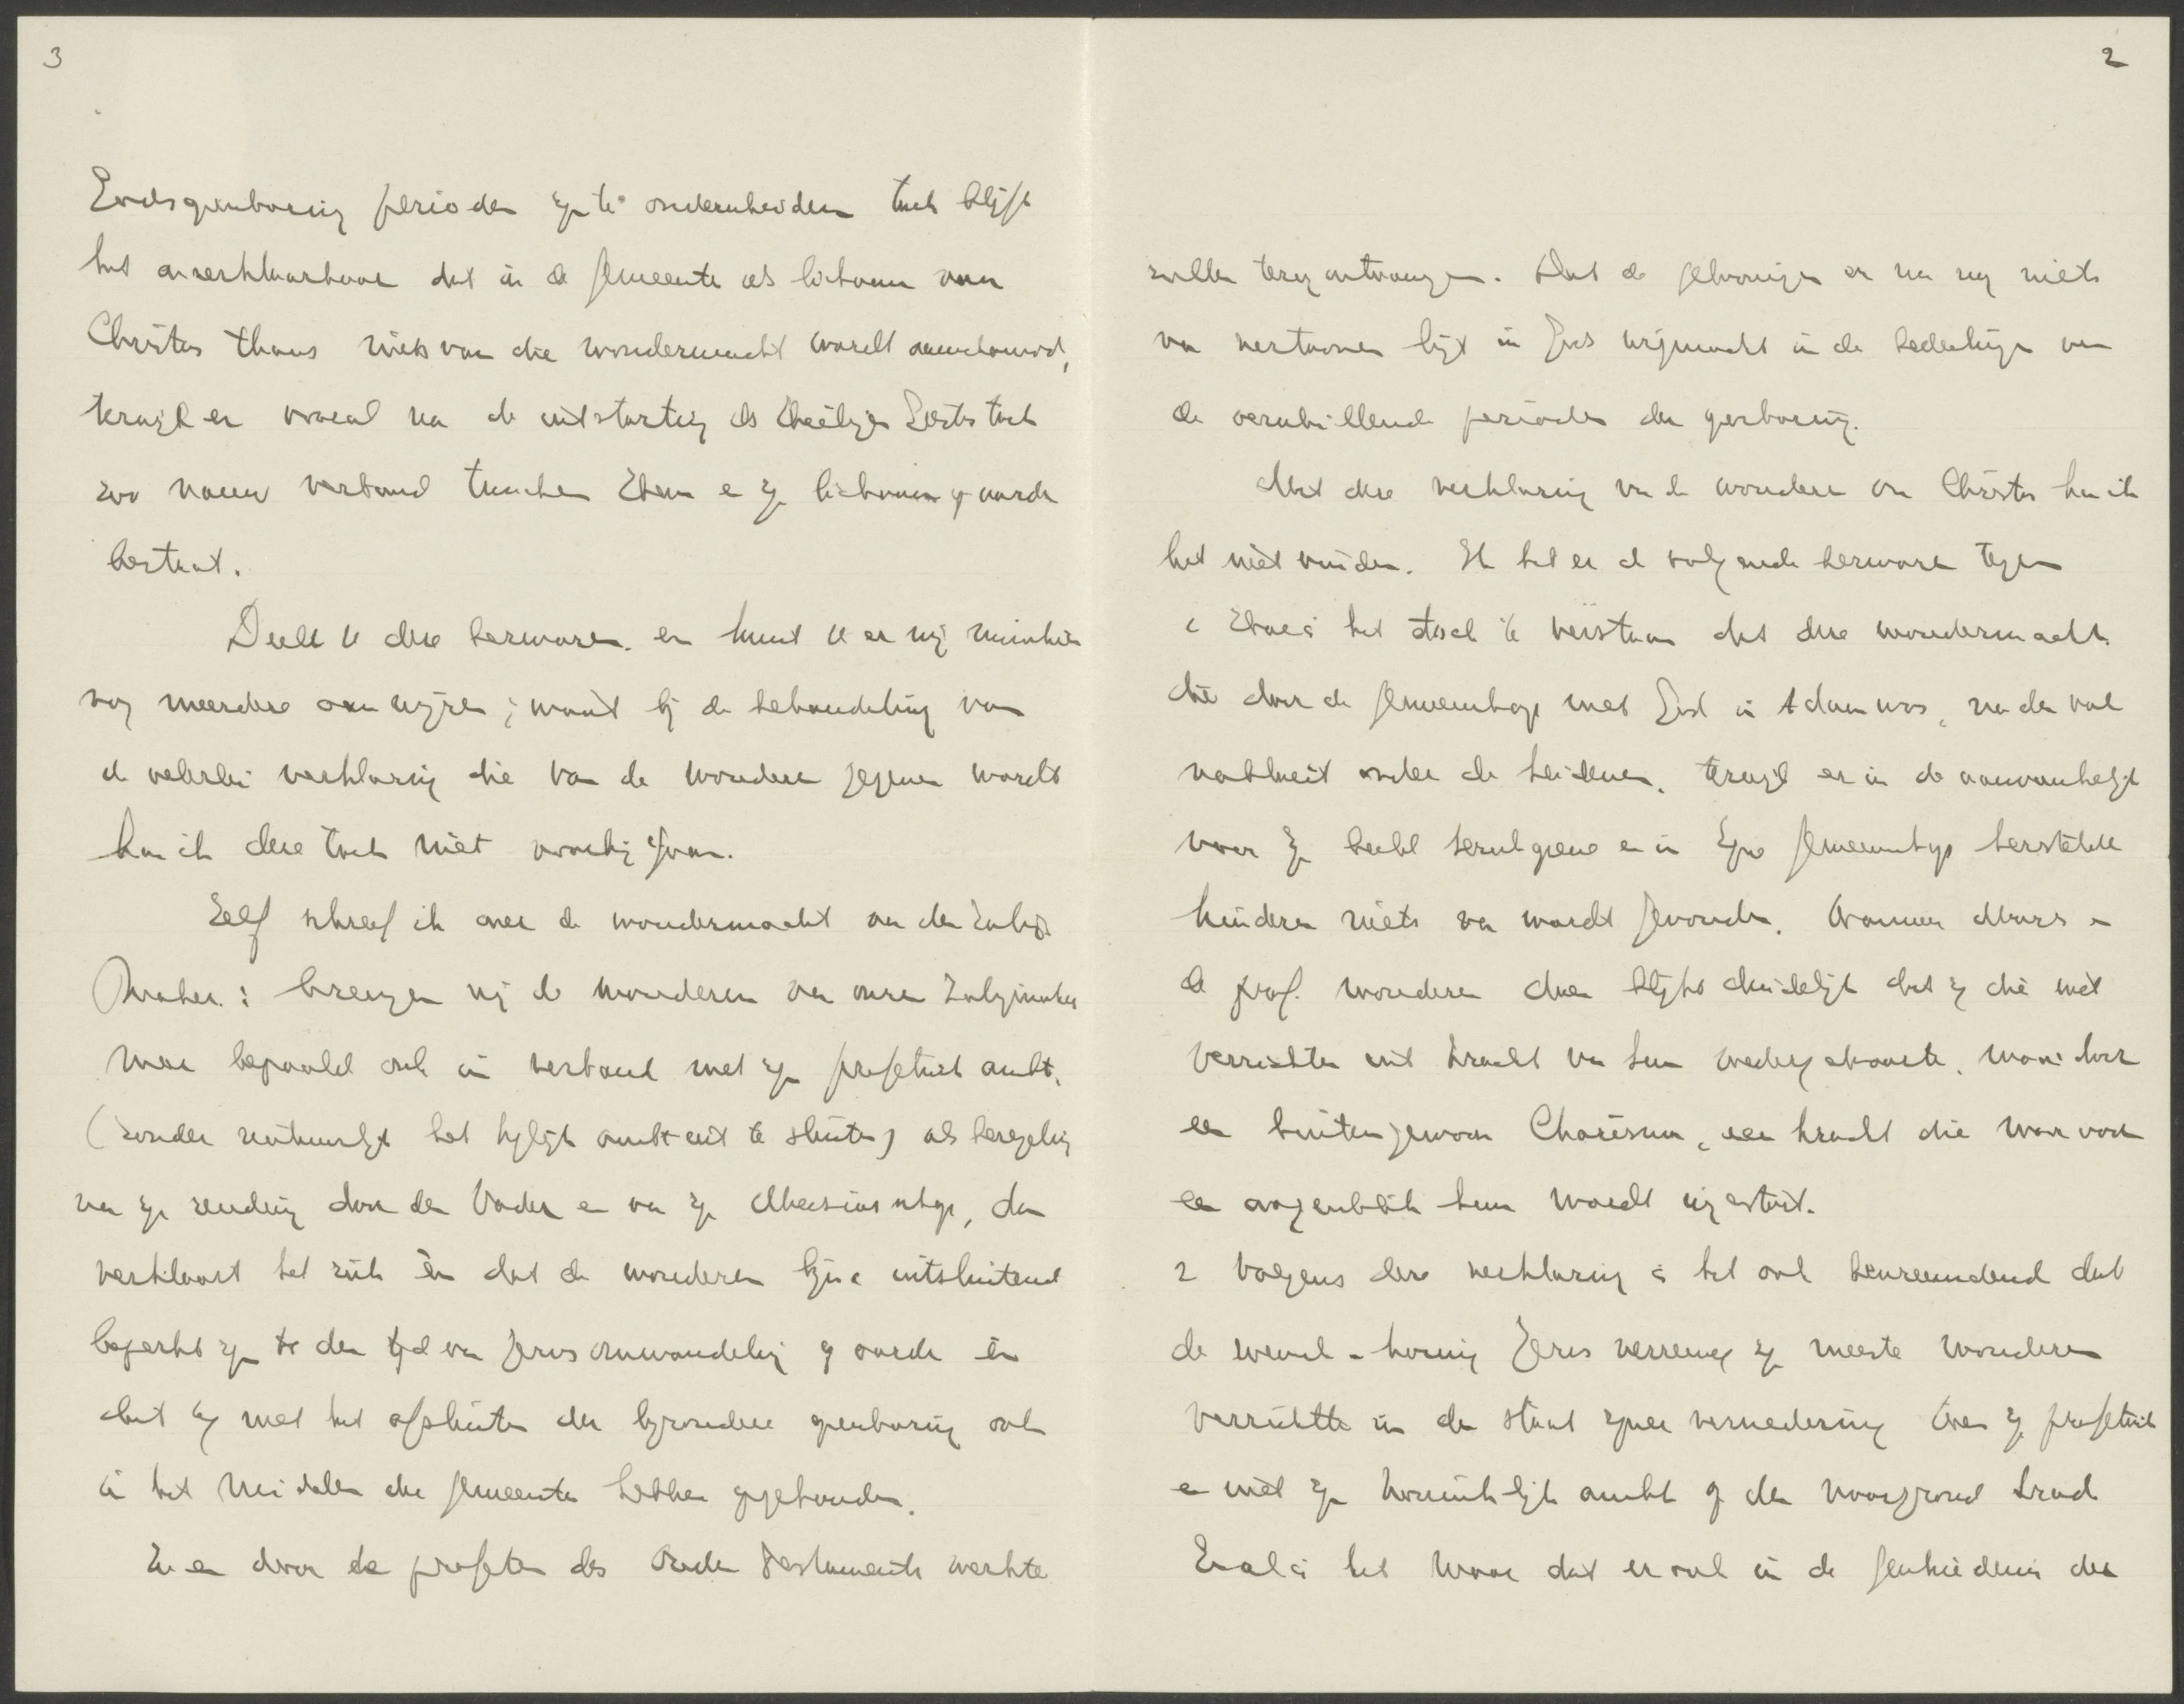 2
zullen terug ontvangen. Dat de geloovigen er nu nog niets
van vertoonen ligt in Gods vrijmacht in de bedeelingen van
de verschillende perioden der openbaring.
Met deze verklaring van de wonderen van Christus kan ik
het niet vinden. Ik heb er de volgende bezwaren tegen
1 Hoe is het toch te verstaan dat deze wondermacht
die door de gemeenschap met God in Adam was, na den val
nabloeit onder de heidenen, terwijl er in de aanvankelijk
naar Zijn beeld herschapene en in Zijne gemeenschap herstelde
kinderen niets van wordt gevonden. Wanneer Mozes en
de prof. wonderen doen blijkt duidelijk dat zij die niet
verrichten uit kracht van hun wedergeboorte, maar door
een buitengewoon Charisma, een kracht die maar voor
een oogenblik hun wordt ingestort.
2 Volgens deze verklaring is het ook bevreemdend dat
de wereld-koning Jezus verreweg zijn meeste wonderen
verrichtte in den staat zijner vernedering toen zijn profetisch
en niet zijn koninklijk ambt op den voorgrond trad
En al is het waar dat er ook in de geschiedenis der
3
Godsopenbaring perioden zijn te onderscheiden toch blijft
het onverklaarbaar dat in de gemeente als lichaam van
Christus thans niets van die wondermacht wordt aanschouwd,
terwijl er vooral na de uitstorting des Heiligen Geestes toch
zoo nauw verband tusschen Hem en zijn lichaam op aarde
bestaat.
Deelt U deze bezwaren en kunt U er mij misschien
nog meerdere aanwijzen; want bij de behandeling van
de velerlei verklaring die van de wonderen gegeven wordt
kan ik deze toch niet voorbij gaan.
Zelf schreef ik over de wondermacht van den Zalig
maker: brengen wij de wonderen van onzen Zaligmaker
maar bepaald ook in verband met zijn profetisch ambt,
(zonder natuurlijk het koninklijk ambt uit te sluiten) als bezegeling
van zijn zending door den Vader en van zijn Messiasschap, dan
verklaart het zich èn dat de wonderen bijna uitsluitend
beperkt zijn tot den tijd van Jezus omwandeling op aarde èn
dat zij met het afsluiten der bijzondere openbaring ook
in het midden der gemeente hebben opgehouden.
En door de profeten des Ouden Testaments werkte